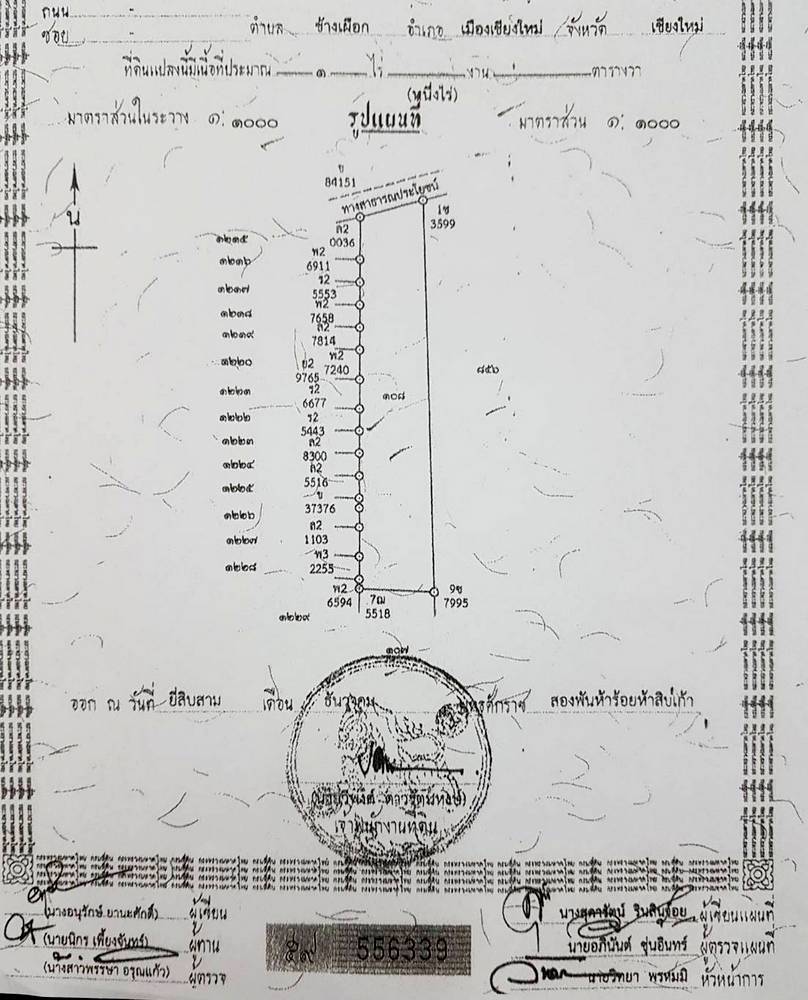 ถนน -
ซอย - ตำบล ช้างเผือก อำเภอ เมืองเชียงใหม่ จังหวัด เชียงใหม่
ที่ดินแปลงนี้มีเนื้อที่ประมาณ ๑ ไร่ - งาน - ตารางวา
(หนึ่งไร่)
มาตราส่วนในระวาง ๑: ๑๐๐๐ รูปแผนที่ มาตราส่วน ๑: ๑๐๐๐
น
ข
84151
ทางสาธารณประโยชน์
1ช
3599
ล2
0036
๑๒๑๕
พ2
6911
๑๒๑๖
ร2
5553
๑๒๑๗
พ2
7658
๑๒๑๘
ล2
7814
๑๒๑๙
พ2
7240
๑๒๒๐
ย2
9765
ร2
6677
๑๒๒๑
ร2
5443
๑๒๒๒
ล2
8300
๑๒๒๓
ล2
5516
๑๒๒๔
ข
37376
๑๒๒๕
ล2
1103
๑๒๒๖
พ3
2255
๑๒๒๗
๑๒๒๘
พ2
6594
7ฌ
5518
9ช
7995
๑๒๒๙
๑๐๘
๘๕๖
๑๐๗
ออก ณ วันที่ ยี่สิบสาม เดือน ธันวาคม พุทธศักราช สองพันห้าร้อยห้าสิบเก้า
เจ้าพนักงานที่ดิน
(นางอนุรักษ์ ยานะศักดิ์) ผู้เขียน
(นายนิกร เพี้ยงจันทร์) ผู้ทาน
(นางสาวพรรษา อรุณแก้ว) ผู้ตรวจ
๕๙ 556339
นางสุดารัตน์ ผู้เขียนแผนที่
นายอภินันต์ ขุ่นอินทร์ ผู้ตรวจแผนที่
นายวิทยา พรหมมิ หัวหน้าการ